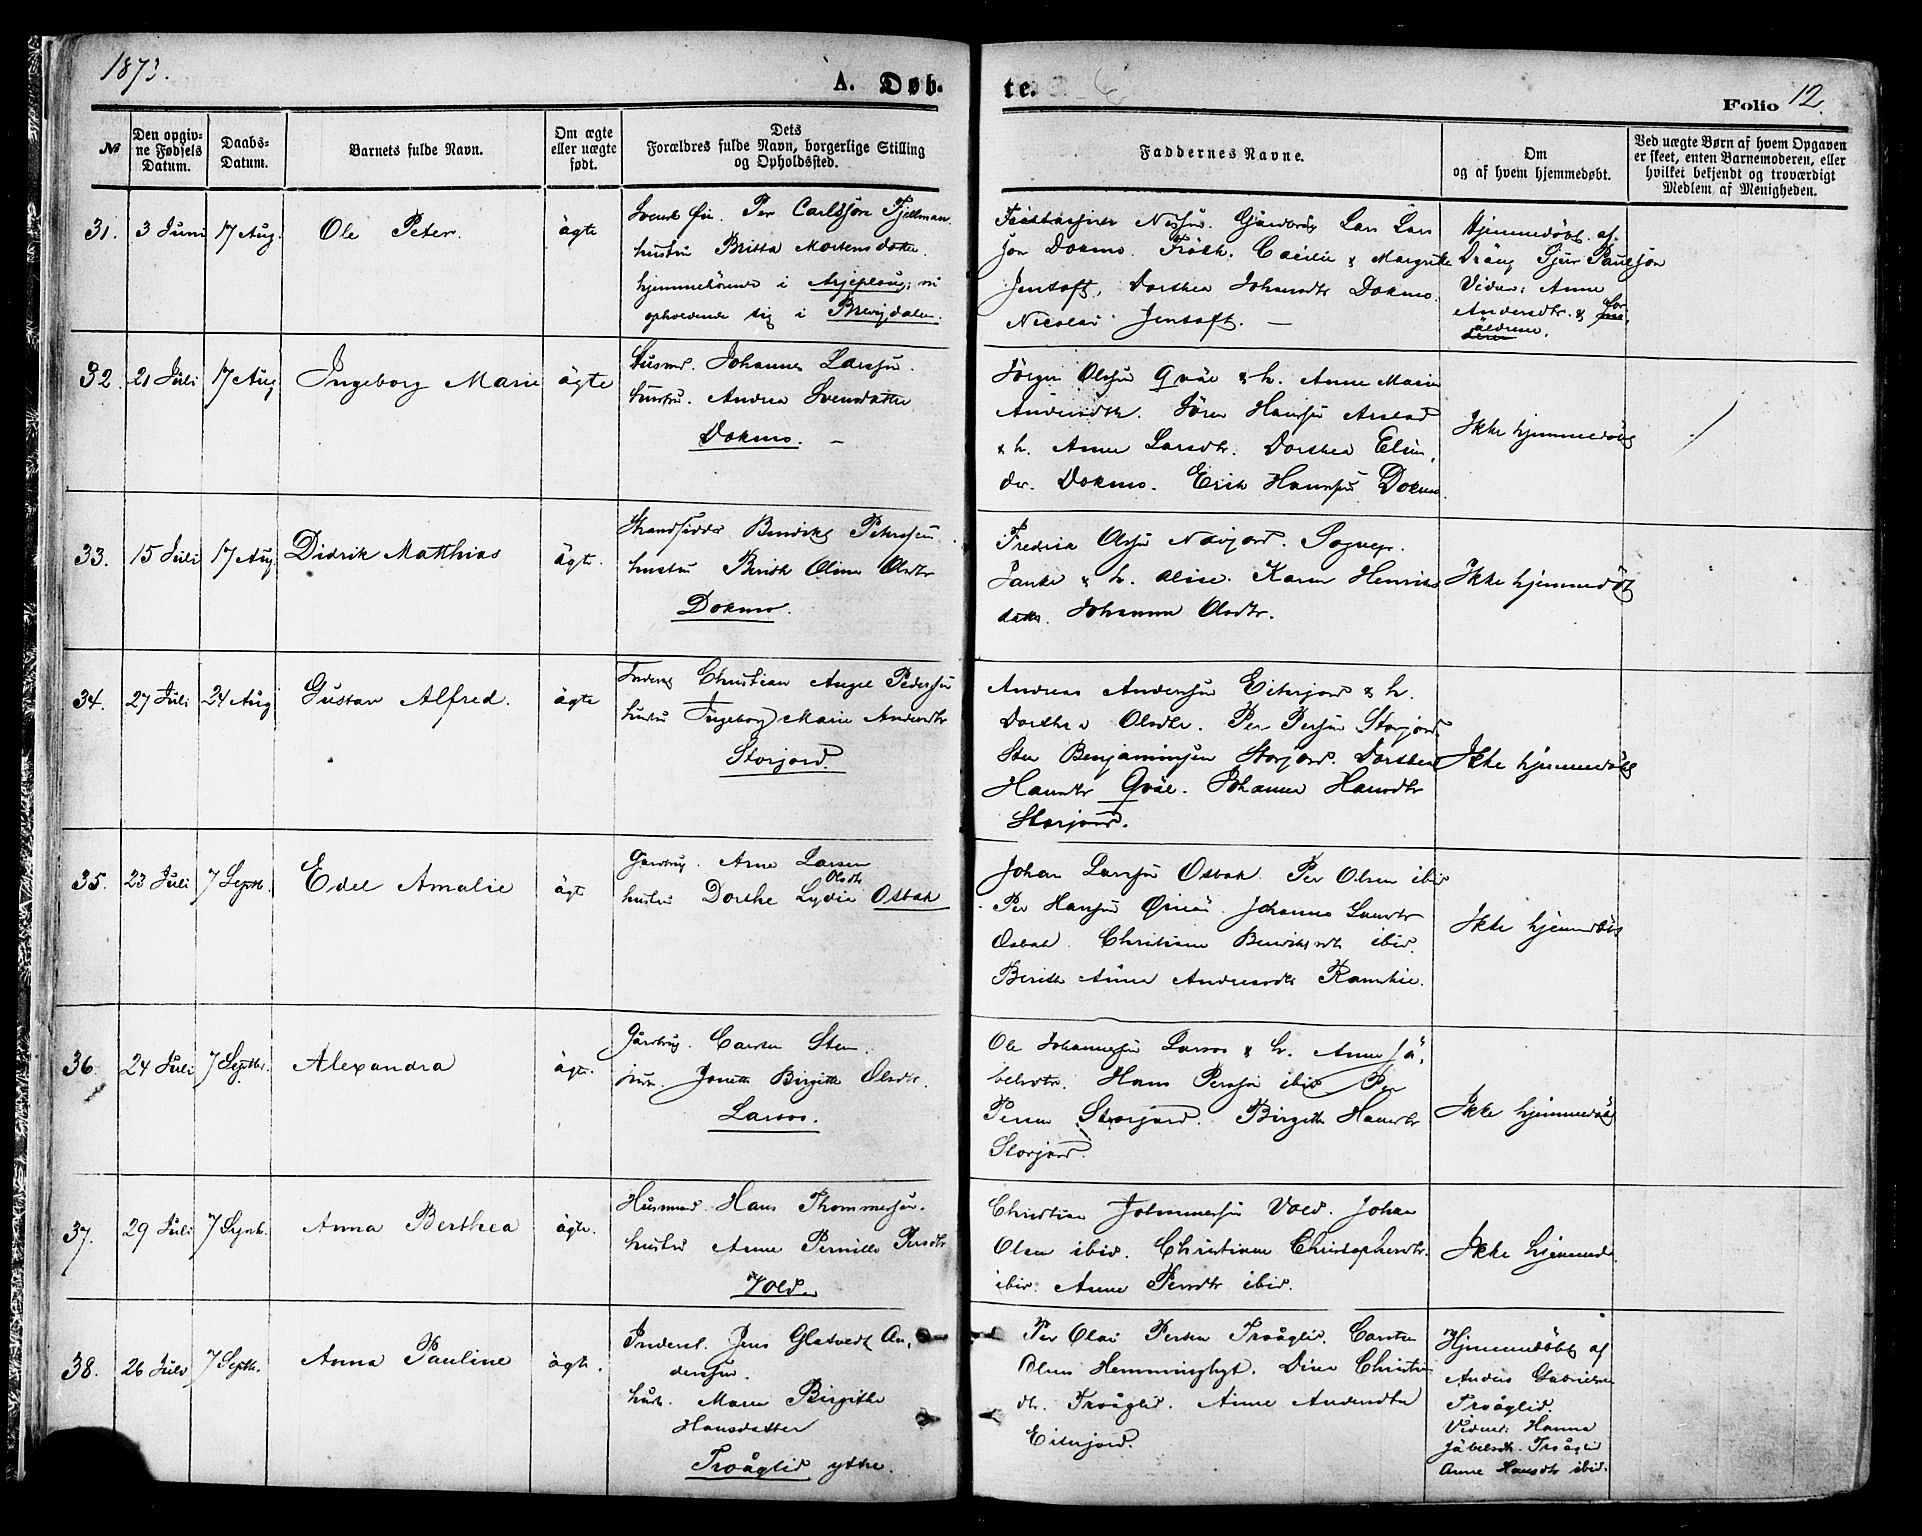 1873.
A. Døb-
te.
Folio 12.
№
Den opgiv-
ne Fødsels
Datum.
Daabs-
Datum.
Barnets fulde Navn.
Om ægte
eller uægte
født.
Dets
Forældres fulde Navn, borgerlige Stilling
og Opholdssted.
Faddernes Navne.
Om
og af hvem hjemmedøbt.
Ved uægte Børn af hvem Opgaven
er skeet, enten Barnemoderen, eller
hvilket bekjendt og troværdigt
Medlem af Menigheden.
31. 3 Juni 17 Aug. Ole Peter. ägte
Per Carlsson Fjellman
hustru Britta Mortensdatter
hjemmehörende i Arjeploug;
opholdende sig i
Lars Lars
son Dokmo. Cæcilie & Margrethe
Jentoft, Dorthea Johansdtr Dokmo.
Nicolai Jentoft. —
Hjemmedöbt af
Dräng Gjur Paulson
Vidner: Anne
Andersdtr. & for
äldrene.
32. 21 Juli 17 Aug Ingeborg Marie ägte
Husmd. Johannes Larssen.
hustru. Andrea Svensdatter
Dokmo. —
Jörgen Olssen Qväl & h. Anne Marie
Andersdtr. Sören Hanssen
& h. Anne Larsdtr. Dorthea
Dokmo. Erik Hanssen Dokmo.
Ikke hjemmedöbt
33. 15 Juli 17 Aug. Didrik Matthias ägte.
Strandsidder Bendik Petersen
hustru Berith Oline Olsdtr
Dokmo.
Fredrik Olssen
& h. Karen Henriks
datter. Johanna Olsdtr.
Ikke hjemmedöbt
34. 27 Juli 24 Aug Gustav Alfred. ägte
Christian Angel Pederssen
hustru Ingeborg Marie Andersdtr
Storjord.
Andreas Anderssen Eiterjord & h.
Dorthea Olsdtr. Per Perssen Storjord
Sten Benjaminsen Storjord. Dorthea
Hansdtr Qväl. Johanna Hansdtr
Storjord.
Ikke hjemmedöbt
35. 23 Juli 7 Septb. Edel Amalie ägt
Gardbrug. Arne Larsen
Olsdtr
hustru Dorthe Lydia Osbak
Johan Larssen Osbak. Per Olsen ibid
Per Hanssen
Osbak. Christiane Bendiksdtr ibid.
Berith Anna Andreasdtr
Ikke hjemmedöbt
36. 24 Juli 7 Septbr. Alexandra ägte.
Gårdbrug. Carsten Sten.
Jonetta Birgitte Olsdtr.
Larsos.
Ole Johannessen Larsos & h. Anne Jä,
belsdtr. Hans Perssen ibid Per
Persen Storjord. Birgitte Hansdtr
Storjord.
Ikke hjemmedöbt
37. 29 Juli 7 Septb. Anna Berthea ägte.
Husmand Hans Thommessen.
hustru Anne Pernille Persdtr
Vold.
Christian Vold. Johan
Olsen ibid. Christiane Christophersdtr.
ibid. Anne Persdtr ibid.
Ikke hjemmed.
38. 26 Juli 7 Septbr. Anna Pauline ägte.
Inderst. Jens Glatvedt An,
derssen.
Maren Birgitte
Hansdatter
Troåglid ytre.
Per Olai Persen Troåglid. Carsten
Olsen Hemminghyt. Dina Christi
dtr. Troåglid. Anne Andersdtr
Eiterjord.
Hjemmedöbt af
Anders Gabrielsen
Troåglid.
Vidner: Hanna
Jäbelsdtr. Troåglid
Anne Hansdtr ibid.